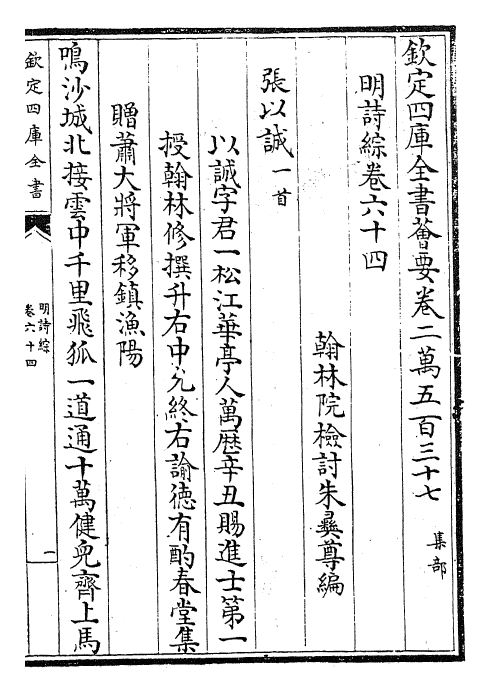 欽定四庫全書薈要卷二萬五百三十七
集部
明詩綜卷六十四
翰林院檢討朱彞尊編
張以誠一首
以誠字君一松江華亭人萬厯辛丑賜進士第一
授翰林修撰升右中允終右諭徳有酌春堂集
贈蕭大將軍移鎮漁陽
鳴沙城北接雲中千里飛狐一道通十萬健兒齊上馬
欽定四庫全書
明詩綜
卷六十四
一